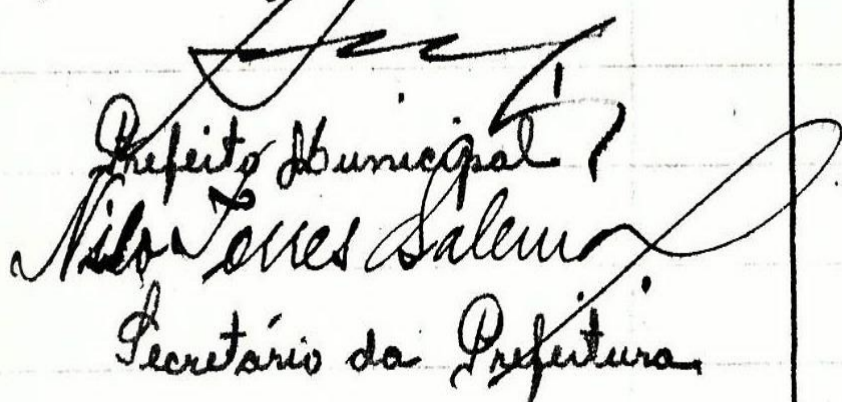 Prefeito Municipal
Nilo Torres Salemo
Secretário da Prefeitura